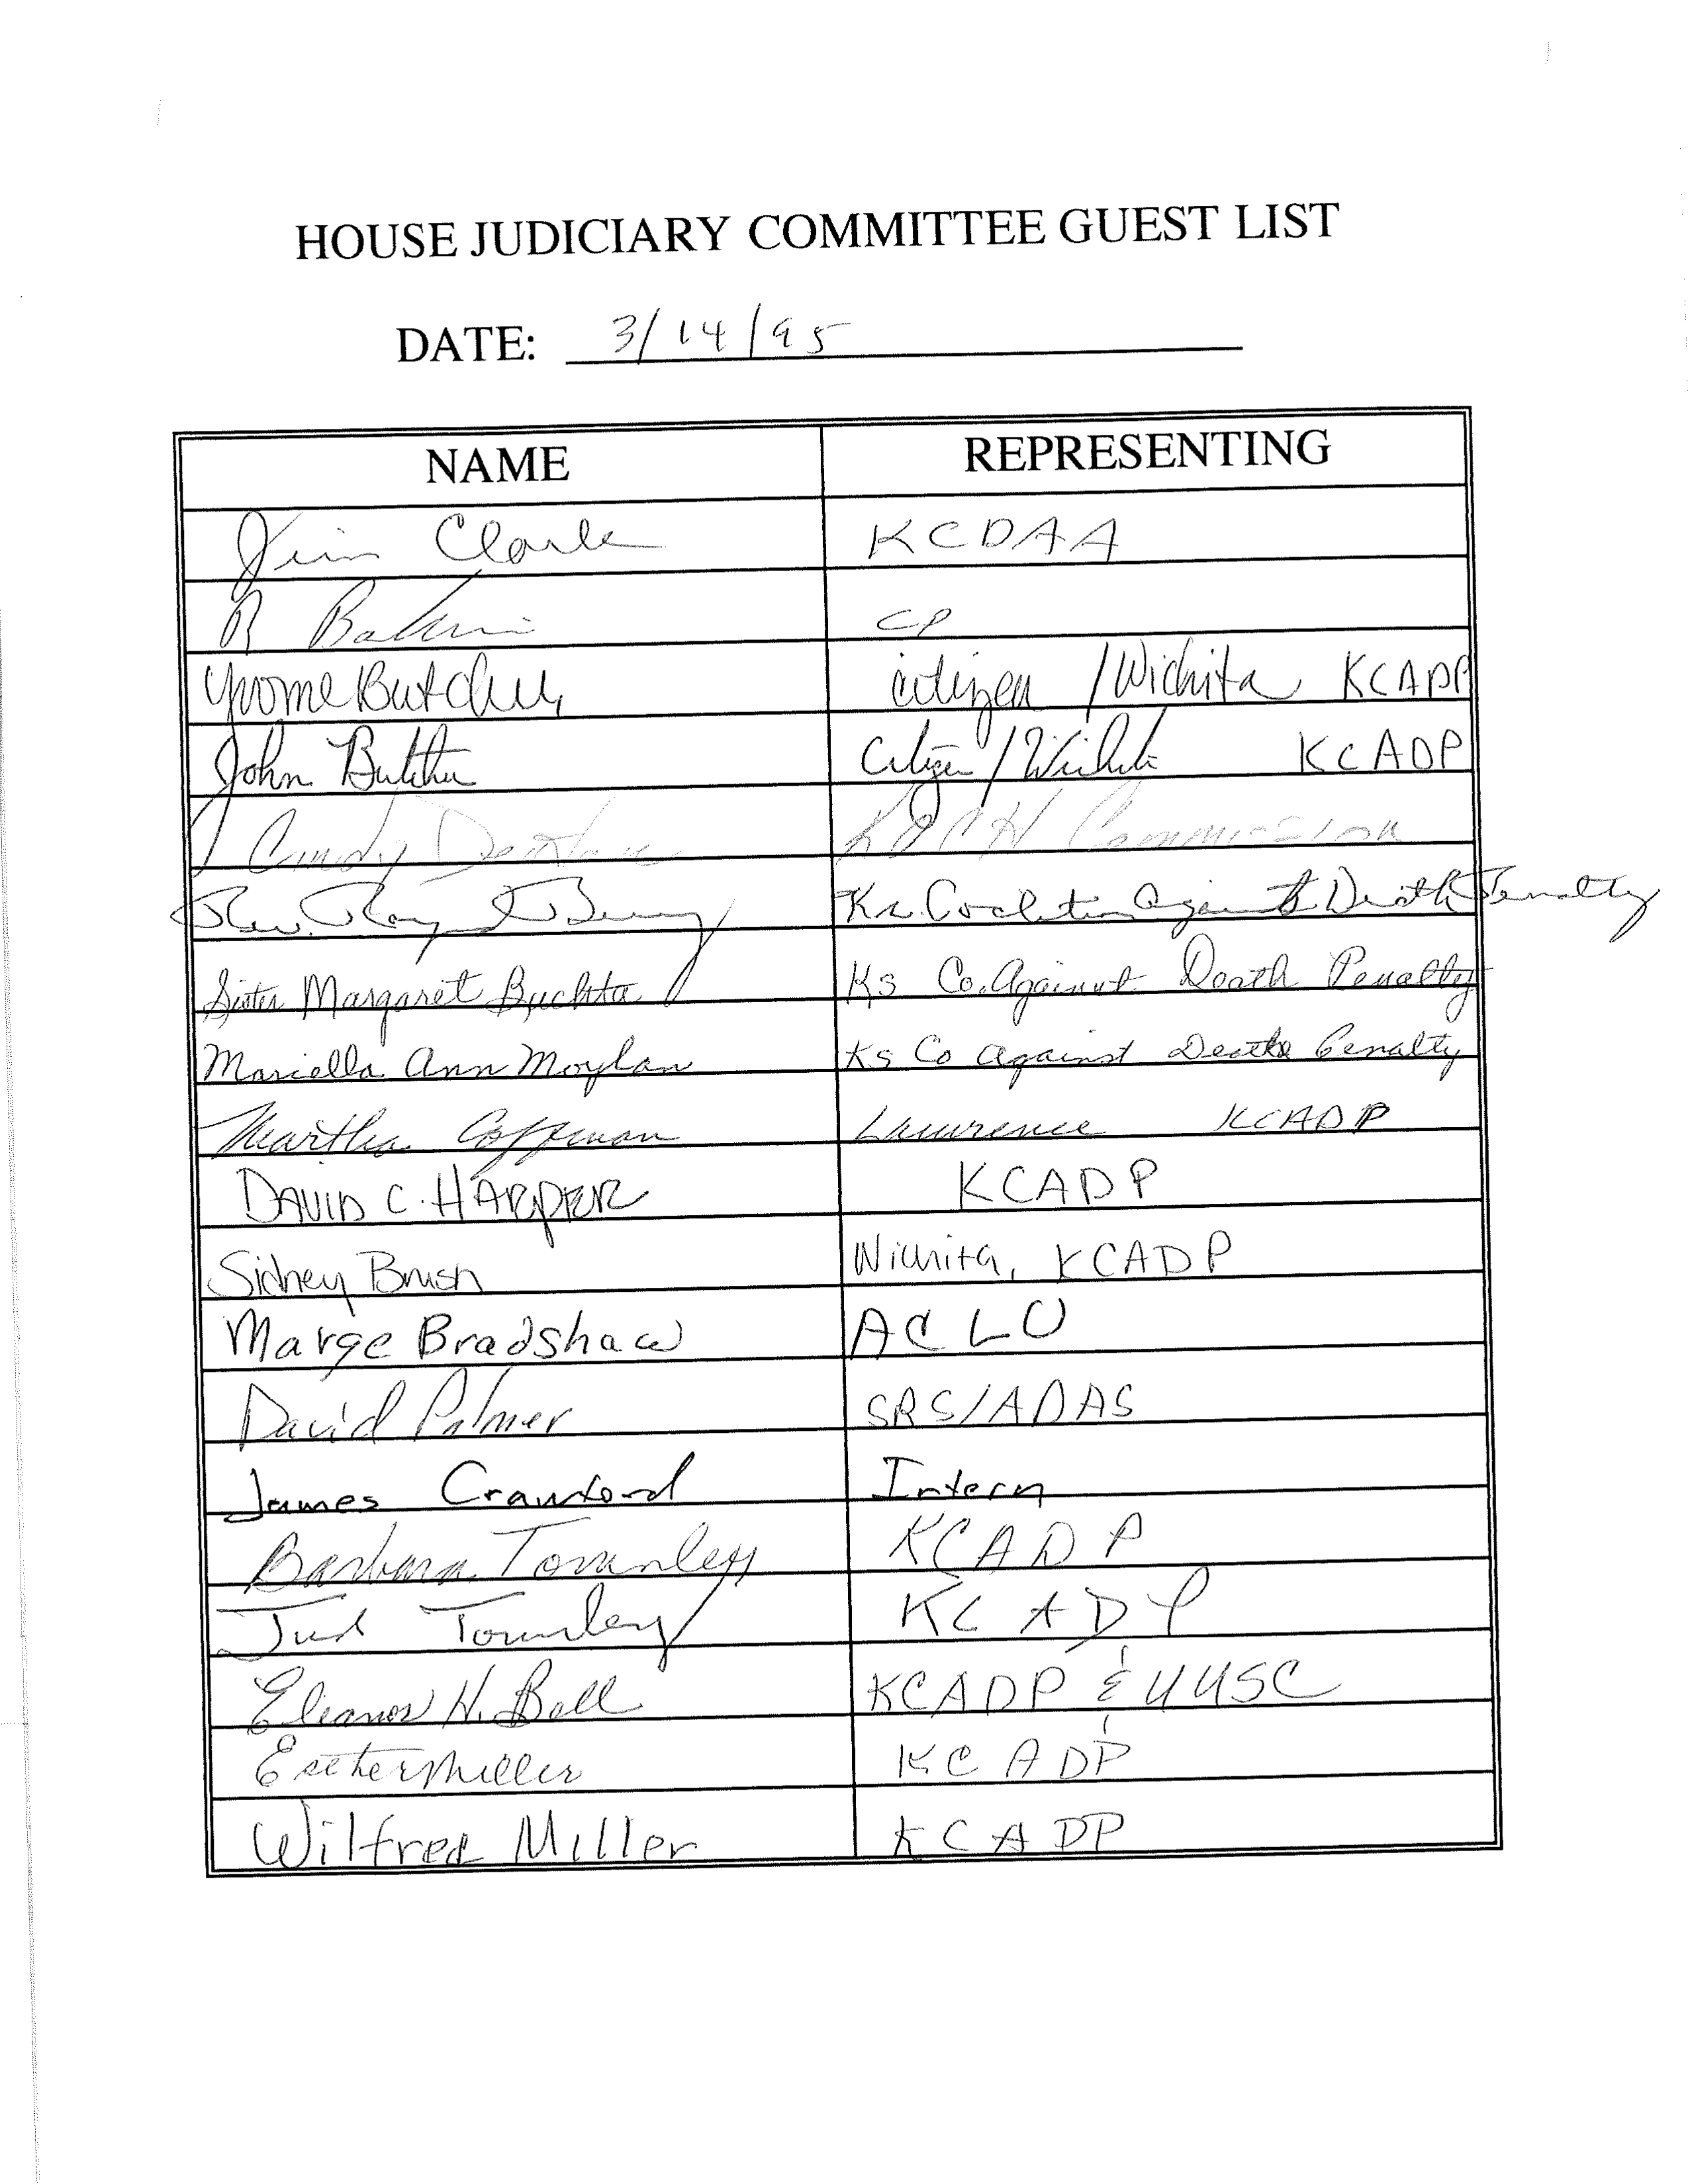 HOUSE JUDICIARY COMMITTEE GUEST LIST
DATE: 3/14/95
NAME REPRESENTING
Jim Clark KCDAA
R CP
Yvonne Butcher citizen / Wichita KCADP
John Butcher Citizen / Wichita KCADP
Candy Commission
Rev. Ray Ks. Coalition Against Death Penalty
Sister Margaret Buchta Ks Co. Against Death Penalty
Mariella Ann Moylan Ks Co against Death Penalty
Martha Coffman Lawrence KCADP
DAVID C. HARPER KCADP
Sidney Brush Wichita, KCADP
Marge Bradshaw ACLU
David Palmer SRS/ADAS
James Crawford Intern
Barbara Townley KCADP
Jud Townley KCADP
Eleanor H. Bell KCADP & UUSC
Esther Miller KCADP
Wilfred Miller KCADP